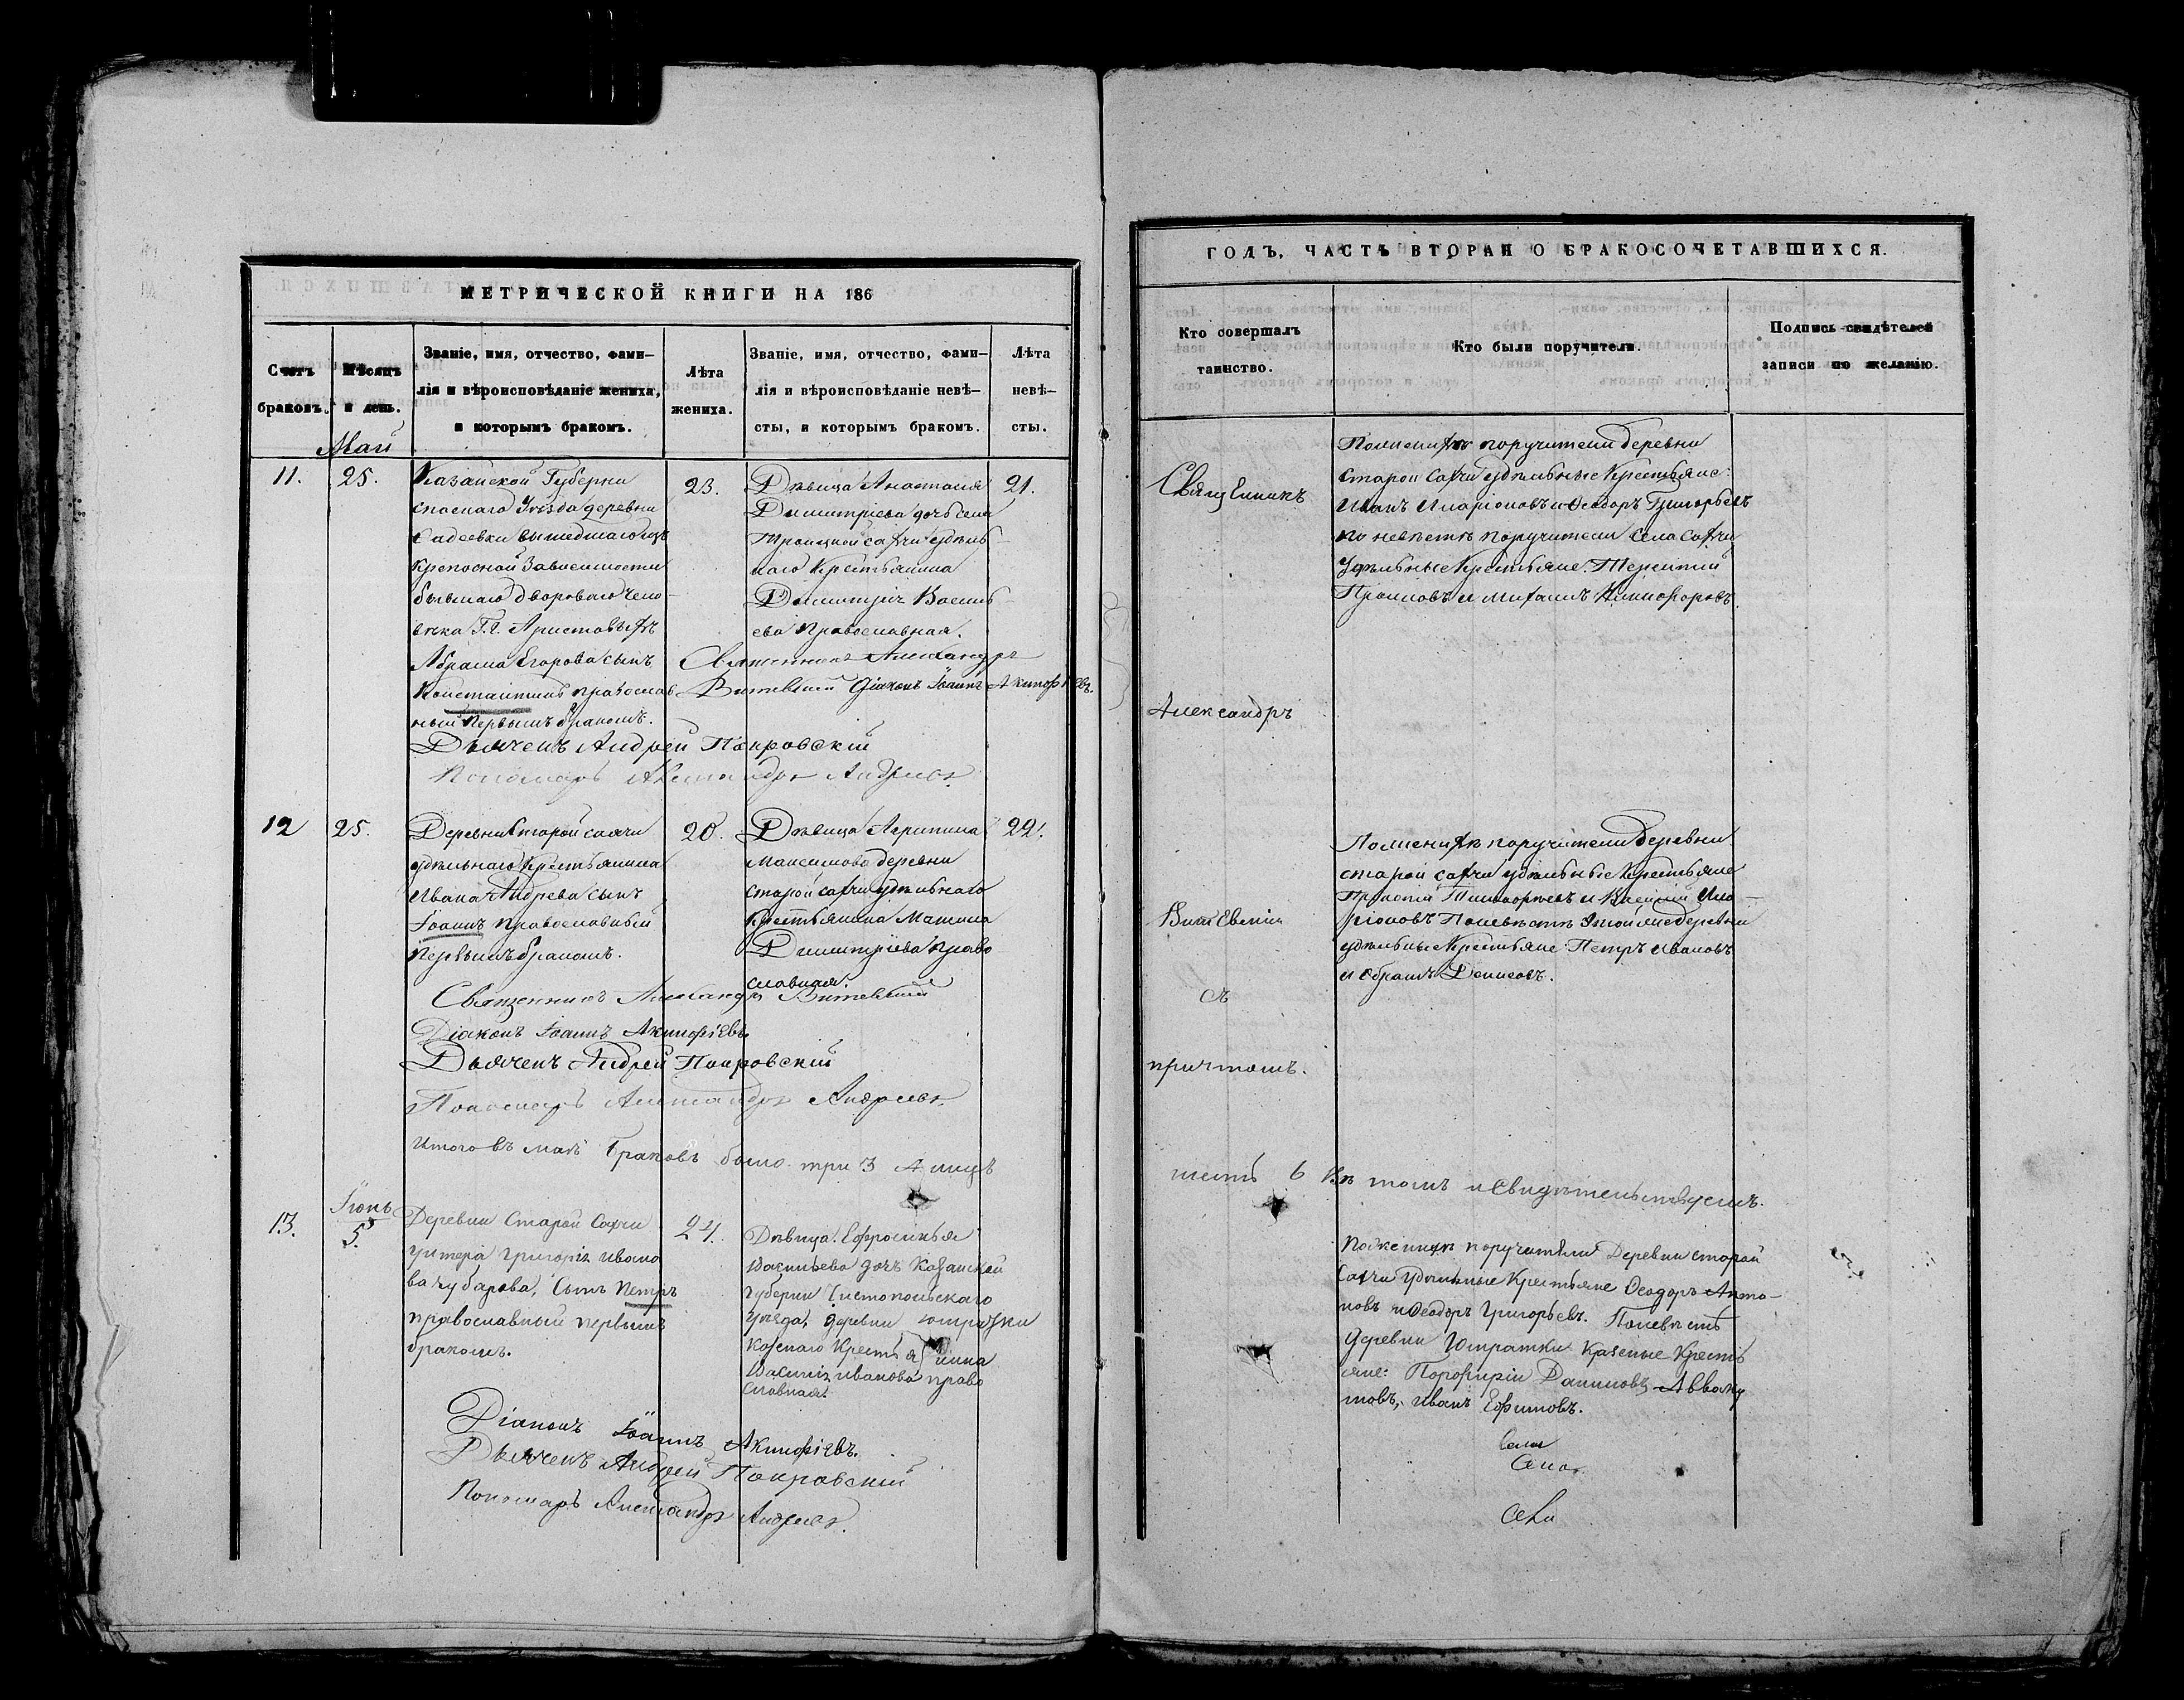 МЕТРИЧЕСКОЙ КНИГИ НА 186
Счетъ браковъ.
Мѣсяцъ и день.
Званіе, имя, отчество, фами-
лія и вѣроисповѣданіе жениха,
и которымъ бракомъ.
Лѣта
жениха.
Званіе, имя, отчество, фами-
лія и вѣроисповѣданіе невѣ-
сты, и которымъ бракомъ.
Лѣта
невѣ-
сты.
Май
11.
25.
Казанской Губерни
спаскаго Уѣзда деревни
вышедшаго изъ
крепосной Зависимости
бывшаго двороваго чело
вѣка Г.г. Аристовыхъ
Абрама Егорова сынъ
Константинъ православ
ный первымъ бракомъ.
23.
Дѣвица Анастасія
Димитріева дочь села
Троицкой сахчи удѣль
наго Крестьянина
Димитрія Василь
ева Православная.
21.
Священникъ Александръ
Витевскій Діаконъ Іоаннъ Акинфіевъ.
Дьячекъ Андрей Покровскій
Пономарь Александръ Андреевъ
12
25.
Деревни Старой сахчи
удѣльнаго Крестьянина
Ивана Андрева сынъ
Іоаннъ православный
первымъ бракомъ.
20.
Дѣвица Агрипина
Максимова деревни
старой сахчи удѣльнаго
Крестьянина Максима
Димитріева право
славная.
22.
Священникъ Александръ Витевскій
Діаконъ Іоаннъ Акинфіевъ
Дьячекъ Андрей Покровскій
Пономарь Александръ Андреевъ
Итого въ маѣ браковъ было три 3 А лицъ
13.
Іюнь
5.
Деревни Старой Сахчи
Григорія Ивано
ва Чубарова, сынъ Петръ
православный первымъ
бракомъ.
24.
Дѣвица Ефросинья
Васильева дочь Казанской
губерни Чистопольскаго
уѣзда, деревни Ютрашки
Казенаго Крестьянина
Василія Иванова право
славная.
Діаконъ Іоаннъ Акинфіевъ.
Дьячекъ Андрей Покровскій
Пономарь Александръ Андреевъ.
ГОДЪ, ЧАСТЬ ВТОРАЯ О БРАКОСОЧЕТАВШИХСЯ.
Кто совершалъ
таинство.
Кто были поручители.
Подпись свидѣтелей
записи по желанію.
Священникъ
Александръ
Витевскій
съ
причтомъ.
По женихѣ поручители деревни
Старой Сахчи удѣльные Крестьяне
Иванъ Иларіоновъ и Ѳеодоръ Григорьевъ
по невѣстѣ поручители Села Сахчи
Удѣльные Крестьяне. Терентій
и Михаилъ Никифоровъ.
По женихѣ поручители деревни
старой сахчи удѣльные Крестьяне
и Василій Ила-
ріоновъ По невѣстѣ этой же деревни
удѣльные Крестьяне Петръ Ивановъ
и Абрамъ Денисовъ.
шесть 6 Въ томъ и Свидѣтельствуемъ.
По женихѣ поручители Деревни старой
Сахчи удѣльные Крестьяне Ѳеодоръ Анто-
новъ и Ѳеодоръ Григорьевъ. По невѣстѣ
деревни Ютрашки Казеные Кресть
яне: Порфирій Даниловъ Аввоку
мовъ, Иванъ Ефимовъ.